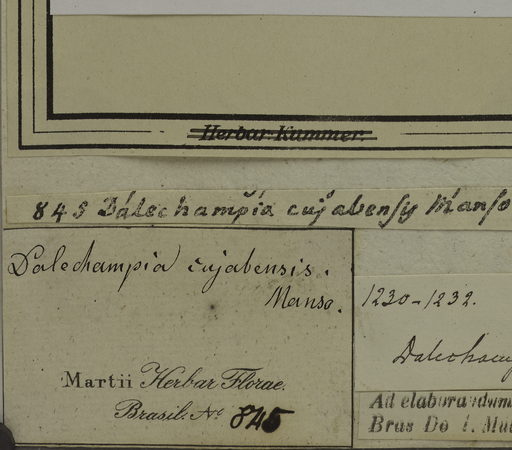 Herbar. Kummer.
845 Dalechampia cujabensy Manso
Dalechampia cujabensis.
Manso.
Martii Herbar. Florae.
Brasil. No 845
1230-1232.
Ad elaborandum
Bras Do